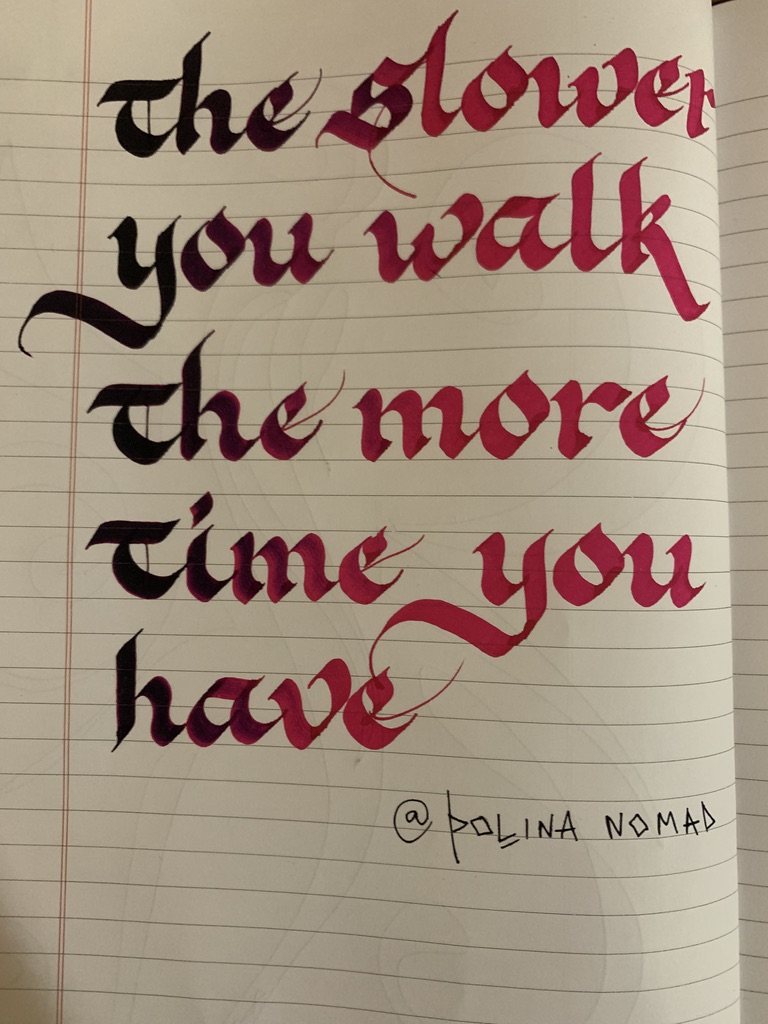 the slower
you walk
the more
time you
have
@POLINA NOMAD